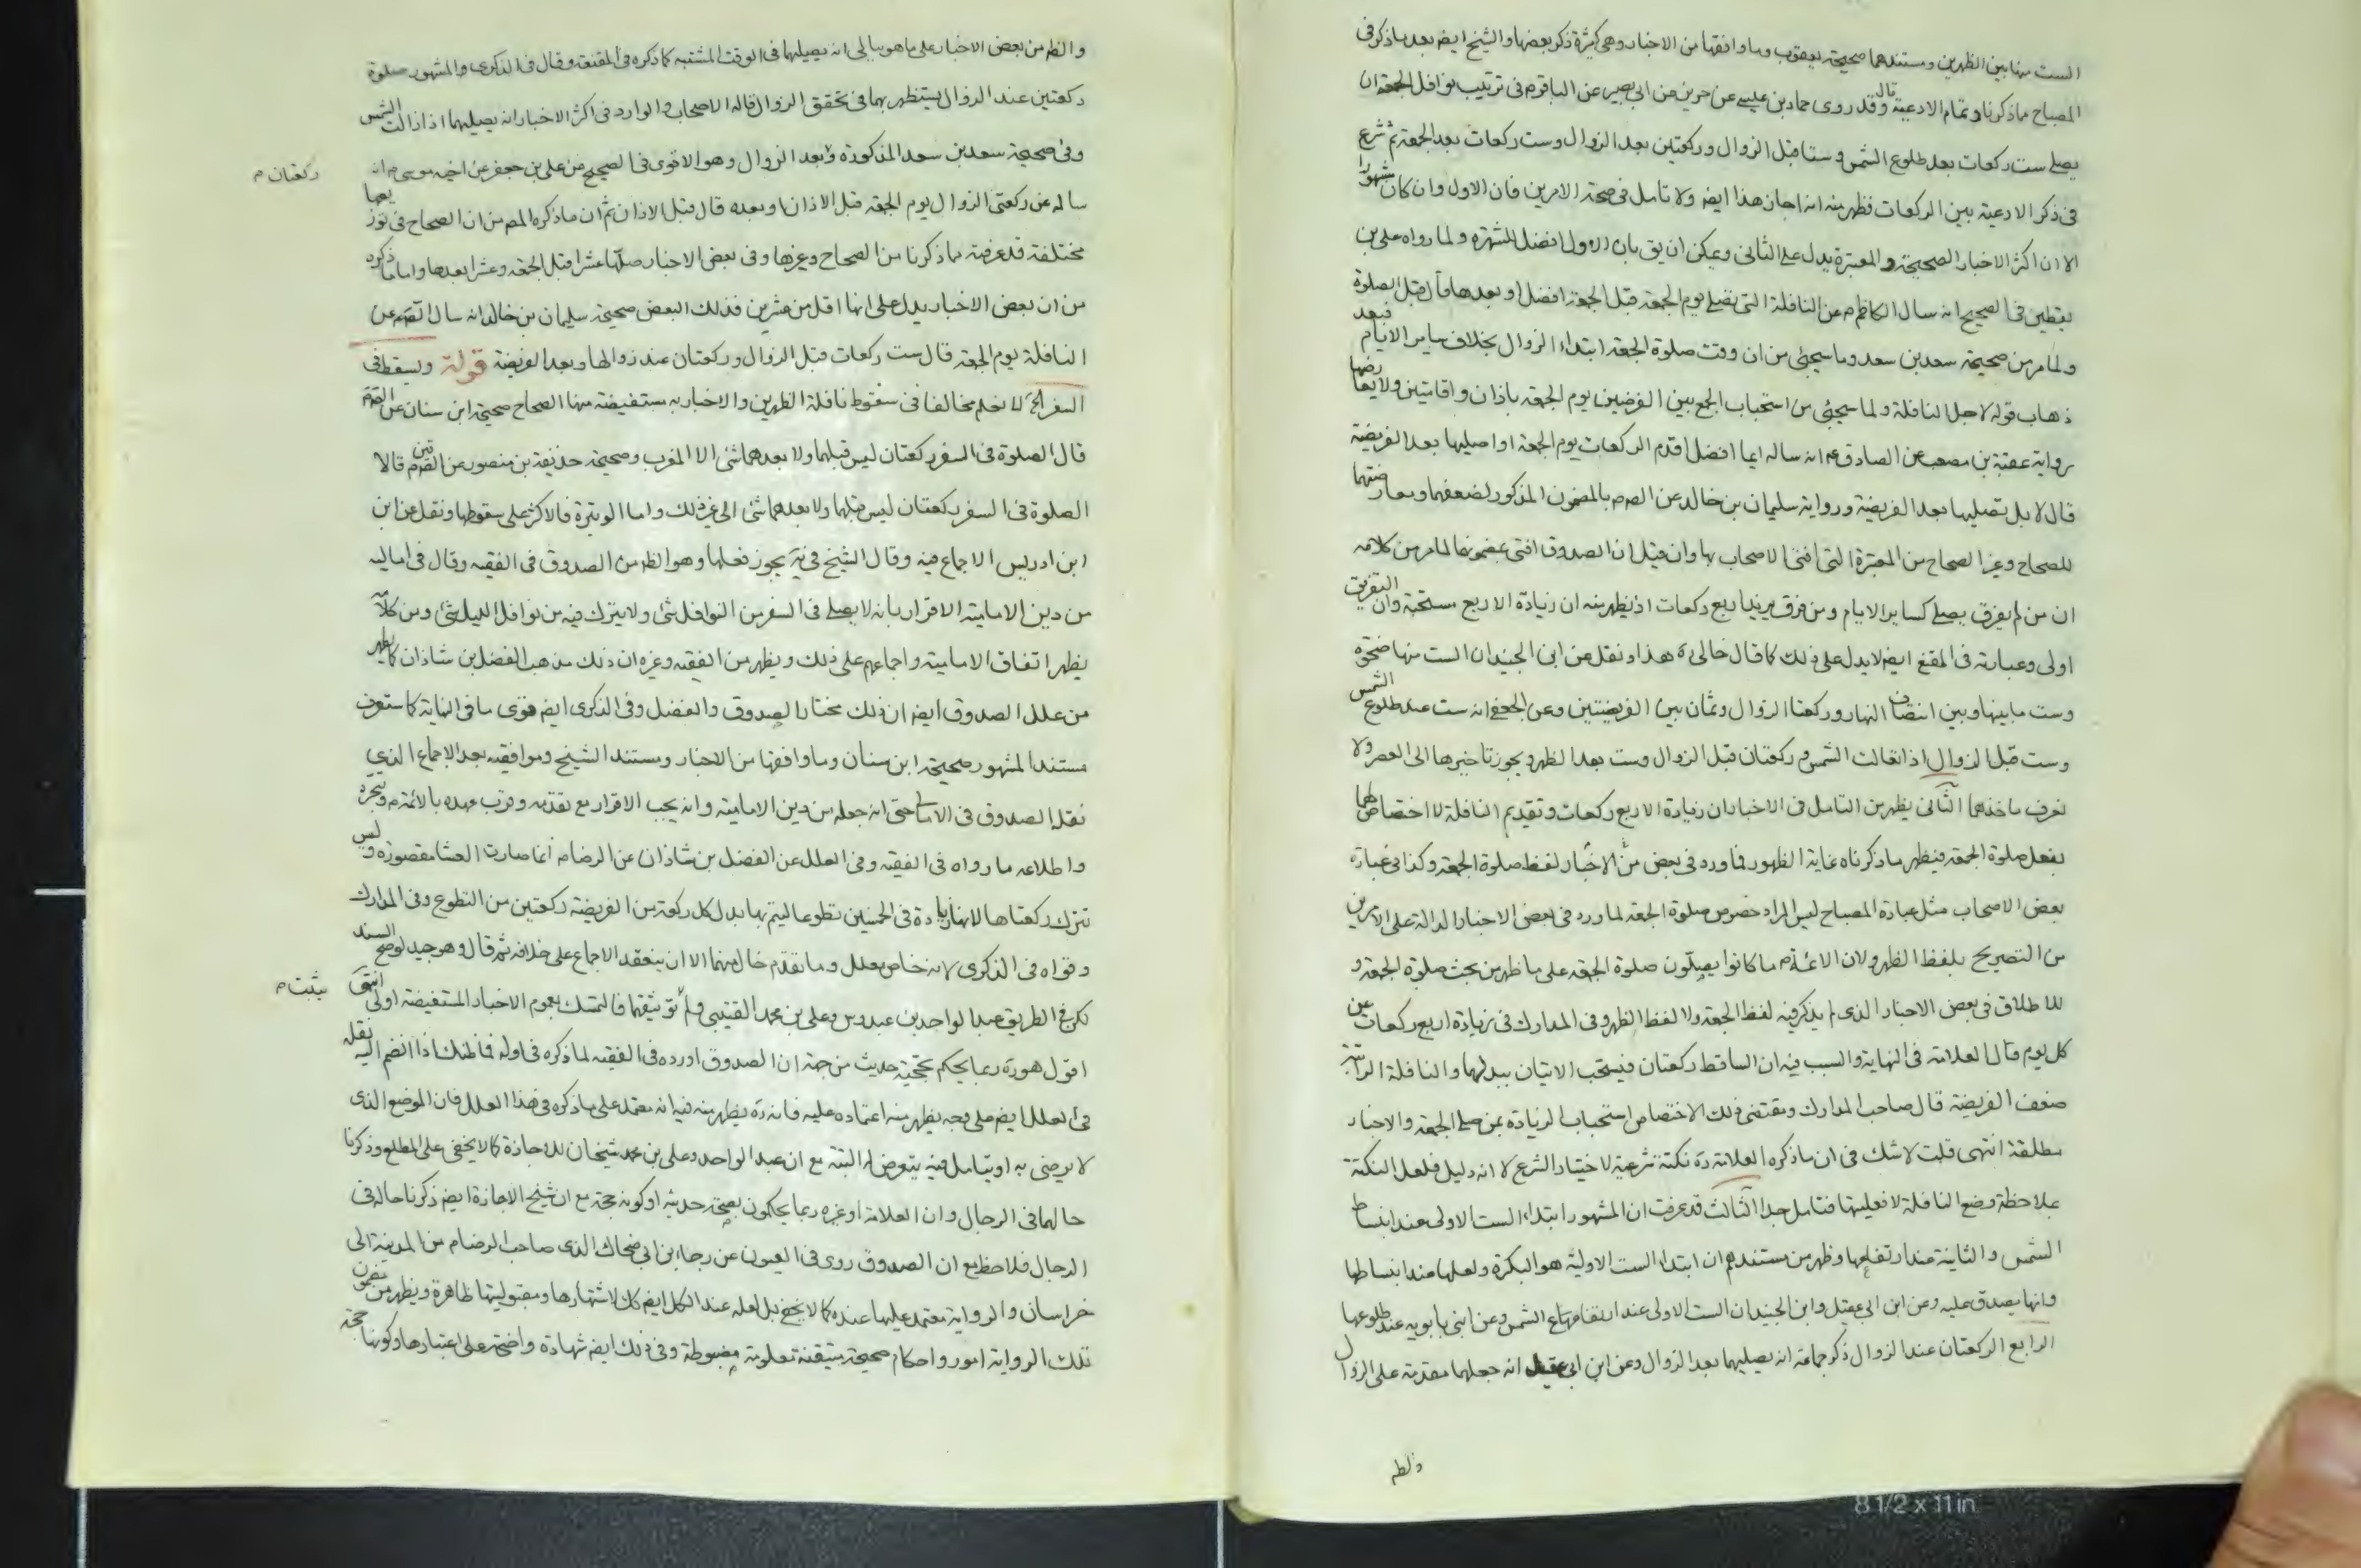 الست منها بين الظهرين ومستندهما صحيحة يعقوب وما وافقها من الاخبار وهى كثيرة ذكر بعضها والشيخ ايضا بعد ما ذكر فى
المصباح ما ذكرنا وتمام الادعية قال وقد روى حماد بن عيسى عن حريز عن ابى بصير عن الباقر م فى ترتيب نوافل الجمعة ان
يصلى ست ركعات بعد طلوع الشمس وستا قبل الزوال وركعتين بعد الزوال وست ركعات بعد الجمعة ثم شرع
فى ذكر الادعية بين الركعات فظهر منه انه اجاز هذا ايضا ولا تامل فى صحة الامرين فان الاول وان كان مشهورا
الا ان اكثر الاخبار الصحيحة والمعتبرة يدل على الثانى ويمكن ان يق بان الاول افضل للشهرة ولما رواه على بن
يقطين فى الصحيح انه سال الكاظم م عن النافلة التى تصلى يوم الجمعة قبل الجمعة افضل او بعدها قال قبل الصلوة
ولما مر من صحيحة سعد بن سعد وما سيجئ من ان وقت صلوة الجمعة ابتداء الزوال بخلاف ساير الايام فبعد
ذهاب قوله لاجل النافلة ولما سيجئ من استحباب الجمع بين الفرضين يوم الجمعة باذان واقامتين ولا يعارضها
رواية عقبة بن مصعب عن الصادق م انه ساله ايما افضل اقدم الركعات يوم الجمعة او اصليها بعد الفريضة
قال لا بل تصليها بعد الفريضة ورواية سليمان بن خالد عن الص م بالمضمون المذكور لضعفهما ومعارضتهما
للصحاح وغير الصحاح من المعتبرة التى افتى الاصحاب بها وان قيل ان الصدوق افتى بمضمونها لما مر من كلامه
ان من لم يفرق يصلى كساير الايام ومن فرق يزيد اربع ركعات اذ يظهر منه ان زيادة الاربع مستحبة وان التفريق
اولى وعبارته فى المقنع ايضا لا يدل على ذلك كما قال خالى ره هذا ونقل عن ابن الجنيد ان الست منها ضحوة
وست ما بينها وبين انتصاف النهار وركعتا الزوال وثمان بين الفريضتين وعن الجعفى انه ست عند طلوع الشمس
وست قبل الزوال اذا تعالت الشمس وركعتان قبل الزوال وست بعد الظهر ويجوز تاخيرها الى العصر ولا
نعرف ماخذهما الثانى يظهر من التامل فى الاخبار ان زيادة الاربع ركعات وتقديم النافلة لا اختصاص لهما
بفعل صلوة الجمعة فيظهر ما ذكرناه غاية الظهور فما ورد فى بعض من الاخبار لفظ صلوة الجمعة وكذا فى عبارة
بعض الاصحاب مثل عبارة المصباح ليس المراد خصوص صلوة الجمعة لما ورد فى بعض الاخبار الدالة على الامرين
من التصريح بلفظ الظهر ولان الائمة م ما كانوا يصلون صلوة الجمعة على ما ظهر من بحث صلوة الجمعة و
للاطلاق فى بعض الاخبار الذى لم يذكر فيه لفظ الجمعة ولا لفظ الظهر وفى المدارك فى زيادة اربع ركعات عن
كل يوم قال العلامة فى النهاية والسبب فيه ان الساقط ركعتان فيستحب الاتيان ببدلهما والنافلة الراتبة
ضعف الفريضة قال صاحب المدارك ومقتضى ذلك الاختصاص استحباب الزيادة بمن صلى الجمعة والاخبار
مطلقة انتهى قلت لا شك فى ان ما ذكره العلامة ره نكتة شرعية لاختيار الشرع لا انه دليل فلعل النكتة
بملاحظة وضع النافلة لا فعليتها فتامل جدا الثالث قد عرفت ان المشهور ابتداء الست الاولى عند انبساط
الشمس والثانية عند ارتفاعها وظهر من مستندهم ان ابتداء الست الاولية هو البكرة ولعلها عند انبساطها
وانها يصدق عليه وعن ابن ابى عقيل وابن الجنيد ان الست الاولى عند ارتفاع الشمس وعن ابنى بابويه عند طلوعها
الرابع الركعتان عند الزوال ذكر جماعة انه يصليهما بعد الزوال وعن ابن ابى عقيل انه جعلهما مقدمة على الزوال
والظ
والظ من بعض الاخبار على ما هو ببالى انه يصليهما فى الوقت المشتبه كما ذكره فى المقنعة وقال فى الذكرى والمشهور صلوة
ركعتين عند الزوال يستظهر بهما فى تحقق الزوال قاله الاصحاب والوارد فى اكثر الاخبار انه يصليهما اذا زالت الشمس
وفى صحيحة سعد بن سعد المذكورة وبعد الزوال وهو الاقوى فى الصحيح عن على بن جعفر عن اخيه موسى م انه
ركعتان م
ساله عن ركعتى الزوال يوم الجمعة قبل الاذان او بعده قال قبل الاذان ثم ان ما ذكره المص من ان الصحاح فى توزيعها
مختلفة قد عرفته مما ذكرنا من الصحاح وغيرها وفى بعض الاخبار صلها عشرا قبل الجمعة وعشرا بعدها واما ما ذكره
من ان بعض الاخبار يدل على انها اقل من عشرين فذلك البعض صحيحة سليمان بن خالد انه سال الص م عن
النافلة يوم الجمعة قال ست ركعات قبل الزوال وركعتان عند زوالها وبعد الفريضة قوله ويسقط فى
السفر الخ لا نعلم مخالفا فى سقوط نافلة الظهرين والاخبار به مستفيضة منها الصحاح صحيحة ابن سنان عن الص م
قال الصلوة فى السفر ركعتان ليس قبلهما ولا بعدهما شئ الا المغرب وصحيحة حذيفة بن منصور عن الصادقين م قالا
الصلوة فى السفر ركعتان ليس قبلهما ولا بعدهما شئ الى غير ذلك واما الوتيرة فالاكثر على سقوطها ونقل عن ابن
ابن ادريس الاجماع فيه وقال الشيخ فى يه يجوز فعلها وهو الظ من الصدوق فى الفقيه وقال فى اماليه
من دين الامامية الاقرار بانه لا يصلى فى السفر من النوافل شئ ولا يترك فيه من نوافل الليل شئ ومن كلامه
يظهر اتفاق الامامية واجماعهم على ذلك ويظهر من الفقيه وغيره ان ذلك مذهب الفضل بن شاذان كما يظهر
من علل الصدوق ايضا ان ذلك مختار الصدوق والفضل وفى الذكرى ايضا قوى ما فى النهاية كما ستعرف
مستند المشهور صحيحة ابن سنان وما وافقها من الاخبار ومستند الشيخ وموافقيه بعد الاجماع الذى
نقله الصدوق فى الامالى حتى انه جعله من دين الامامية وانه يجب الاقرار مع تقدمه وقرب عهده بالائمة م وتبحره
واطلاعه ما رواه فى الفقيه وفى العلل عن الفضل بن شاذان عن الرضا م انما صارت العشا مقصورة وليس
تترك ركعتاها لانهما زيادة فى الخمسين تطوعا ليتم بهما بدل كل ركعة من الفريضة ركعتين من التطوع وفى المدارك
وقواه فى الذكرى لانه خاص معلل وما تقدم خال منهما الا ان ينعقد الاجماع على خلافه ثم قال وهو جيد لو صح السند
لكن فى الطريق عبد الواحد بن عبدوس وعلى بن محمد القتيبى ولم توثيقهما فالتمسك بعموم الاخبار المستفيضة اولى انتهى
يثبت م
اقول هو ره ربما يحكم بحجية حديث من جهة ان الصدوق اورده فى الفقيه لما ذكره فى اوله فما ظنك اذا انضم اليه نقله
فى العلل ايضا على وجه يظهر منه اعتماده عليه فانه ره يظهر منه فيه انه معتمد على ما ذكره فى هذا العلل فان الموضع الذى
لا يرضى به او يتامل فيه يتعرض له البتة مع ان عبد الواحد وعلى بن محمد شيخان للاجازة كما لا يخفى على المطلع وذكرنا
حالهما فى الرجال وان العلامة او غيره ربما يحكمون بصحة حديثه او كونه حجة مع ان شيخ الاجازة ايضا ذكرنا حاله فى
الرجال فلاحظ مع ان الصدوق روى فى العيون عن رجاء بن ابى ضحاك الذى صاحب الرضا م من المدينة الى
خراسان والرواية معتمد عليها عنده كما لا يخفى بل لعله عند الكل ايضا كك لاشتهارها ومقبوليتها ظاهرة ويظهر من مضمون
تلك الرواية امور واحكام صحيحة متيقنة معلومة مضبوطة وفى ذلك ايضا شهادة واضحة على اعتبارها وكونها حجة
8 1/2 x 11 in